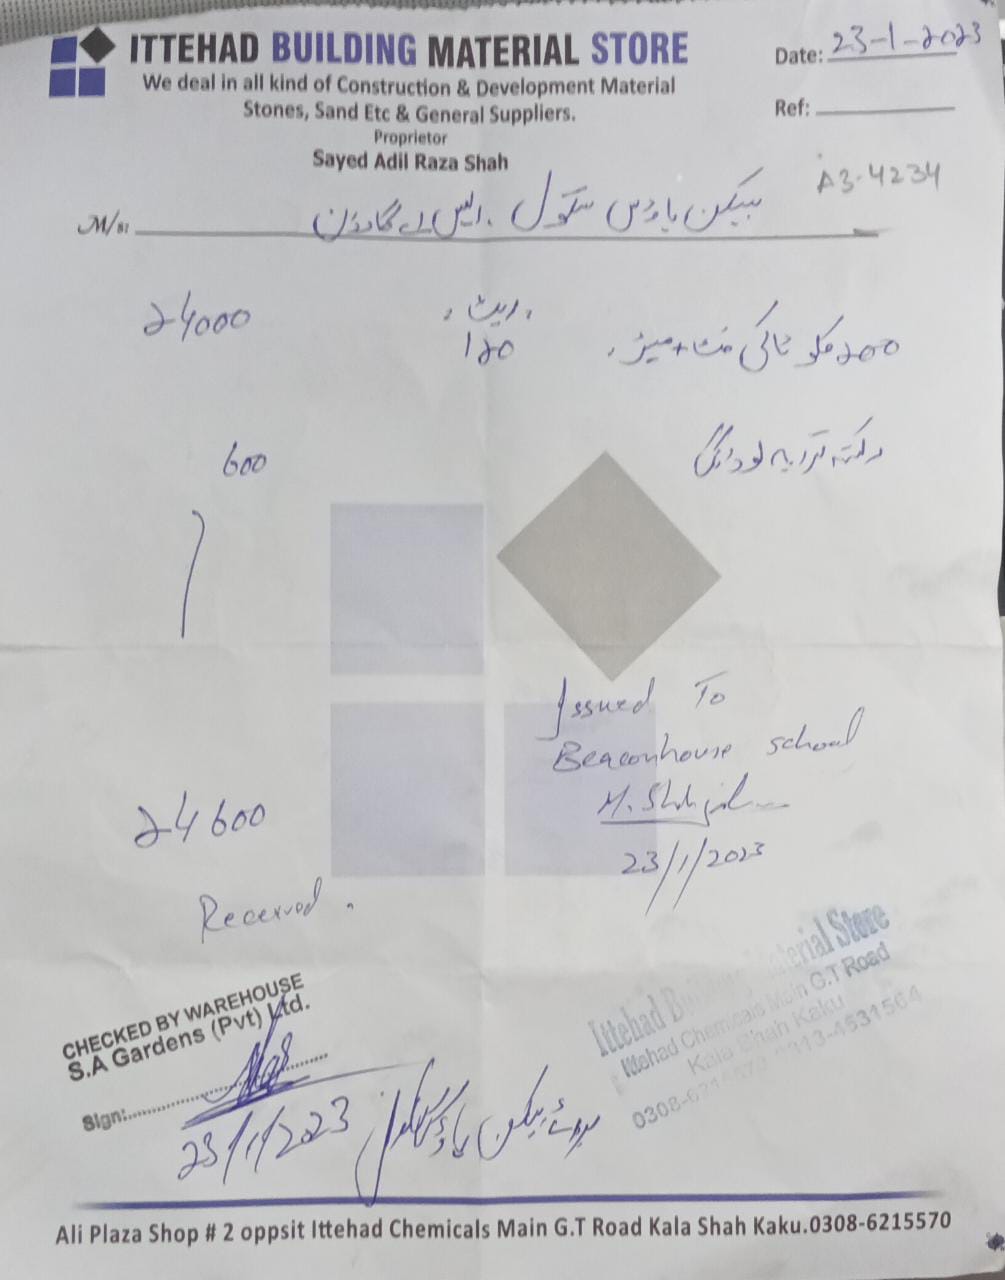 ITTEHAD BUILDING MATERIAL STORE
We deal in all kind of Construction & Development Material
Stones, Sand Etc & General Suppliers.
Proprietor
Sayed Adil Raza Shah
Date: 23-1-2023
Ref:
A3-4234
M/s: بیکن ہاؤس سکول . ایس اے گارڈن
ریٹ
200 مکو ٹائل 120 24000
رکشہ کرایہ لوڈنگ 600
Issued To
Beaconhouse school
23/1/2023
24600
Received.
CHECKED BY WAREHOUSE
S.A Gardens (Pvt) Ltd.
Sign:
23/1/2023
بیکن ہاؤس سکول
Ittehad Building Material Store
Ittehad Chemicals Main G.T Road
Kala Shah Kaku
Ali Plaza Shop # 2 oppsit Ittehad Chemicals Main G.T Road Kala Shah Kaku.0308-6215570